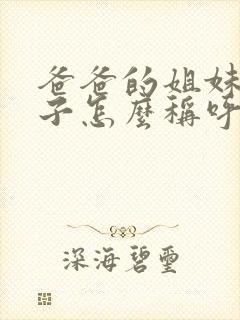 爸爸的姐妹
子怎麼稱呼
深海碧璽